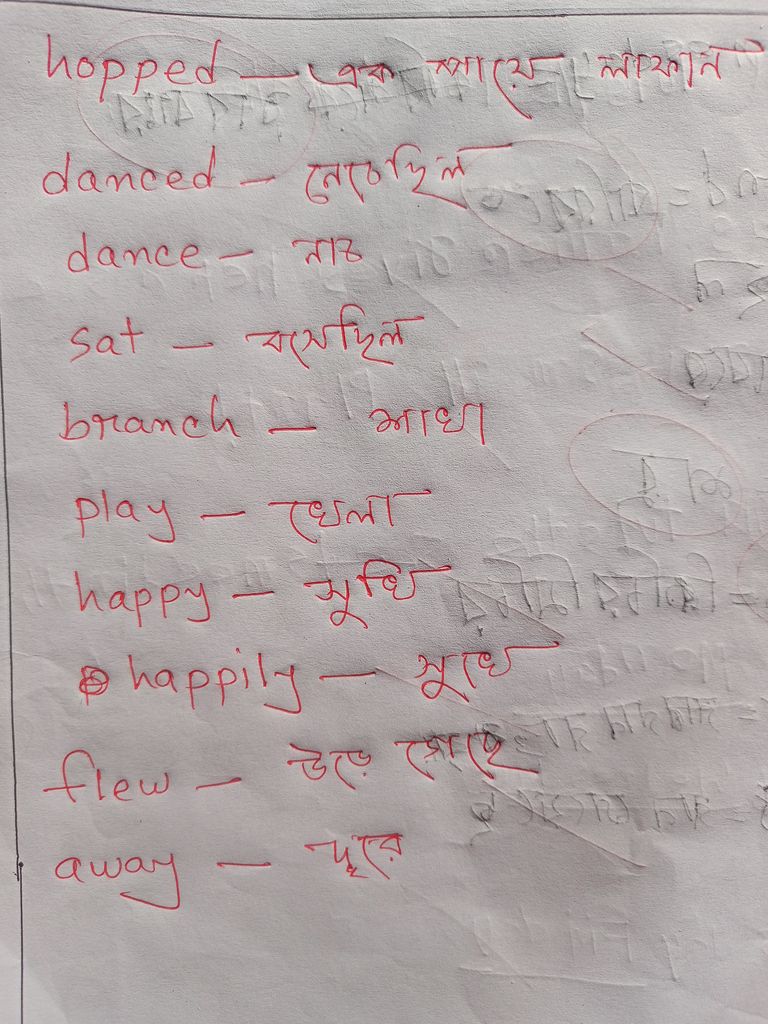 hopped — এক পায়ে লাফান
danced — নেচেছিল
dance — নাচ
sat — বসেছিল
branch — শাখা
play — খেলা
happy — সুখি
happily — সুখে
flew — উড়ে গেছে
away — দূরে